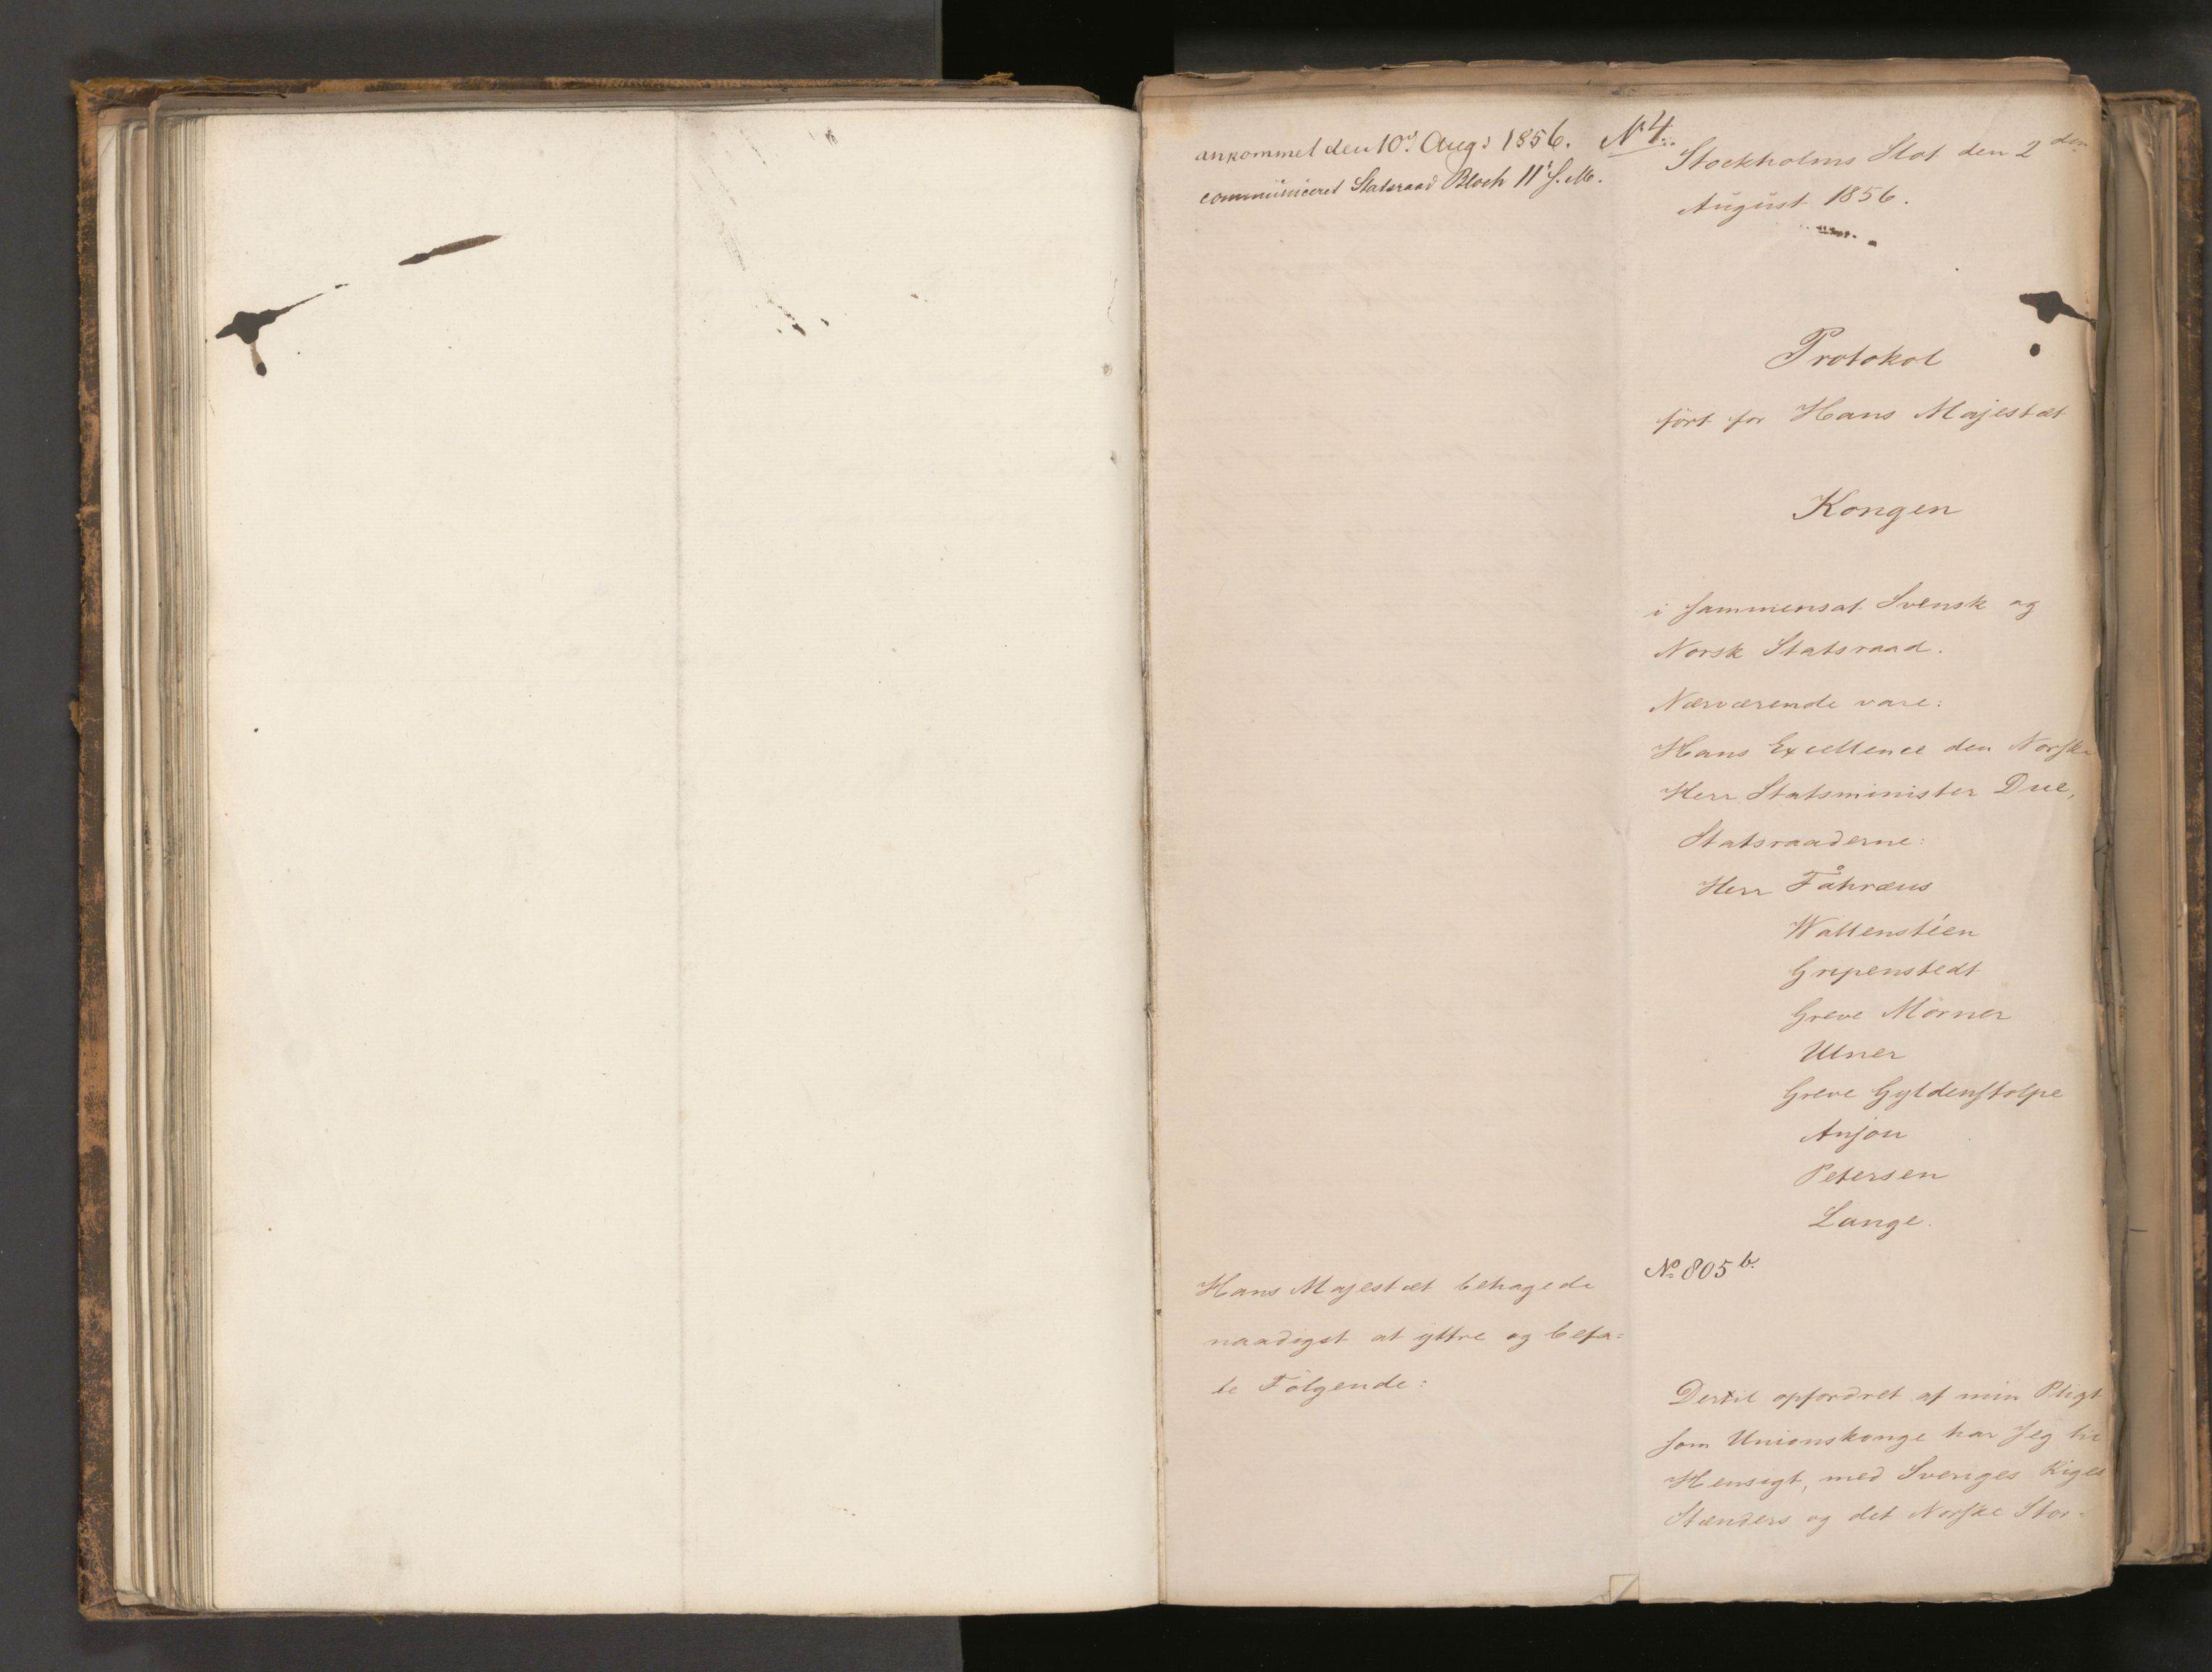 ankommet den 10d. Augs 1856.
communiceret Statsraad Bloch 11t s. M.
No 4.
Stockholms Slot den 2den
August 1856.
Protokol
ført for Hans Majestæt
Kongen
i sammensat Svensk og
Norsk Statsraad.
Nærværende vare:
Hans Excellence den Norske
Herr Statsminister Due,
Statsraaderne:
Herr Fåhræus
Wallenstéen
Gripenstedt
Greve Mörner
Ulner
Greve Gyldenstolpe
Anjou
Petersen
Lange.
No 805 b.
Hans Majestæt behagede
naadigst at yttre og befa=
le Følgende:
Dertil opfordret af min Pligt
som Unionskonge har Jeg til
Hensigt, med Sveriges Riges
Stænders og det Norske Stor=